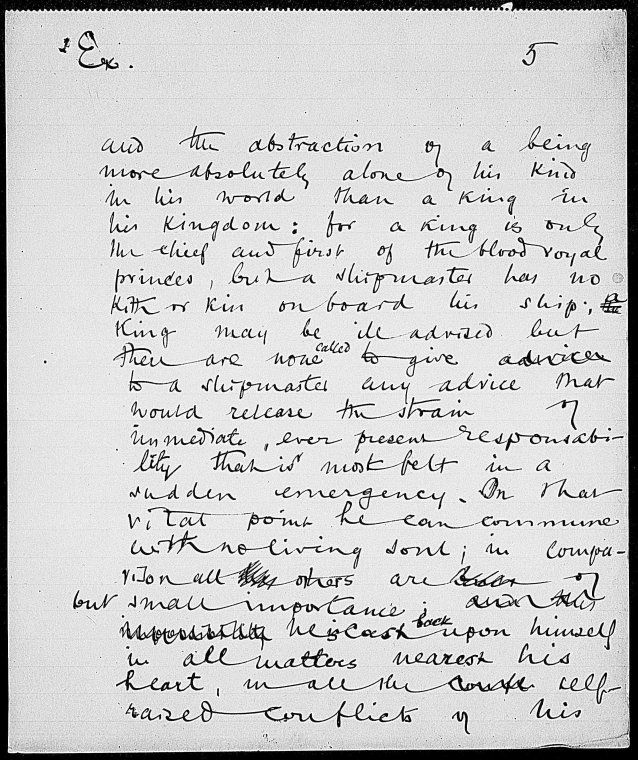 Ex. 5
and the abstraction of a being
more absolutely alone of his kind
in his world than a king in
his Kingdom: for a king is only
the chief and first of the blood royal
princes, but a shipmaster has no
Kith or Kin on board his ship; a
King may be ill advised but
there are none called to give advice
to a shipmaster any advice that
would release the strain of
immediate, ever present responsabi-
lity that is most felt in a
sudden emergency. On that
vital point he can commune
with no living soul; in compa-
rison all others are of
but small importance; and this
impossibility he is cast back upon himself
in all matters nearest his
heart, in all the self-
raised conflicts of his